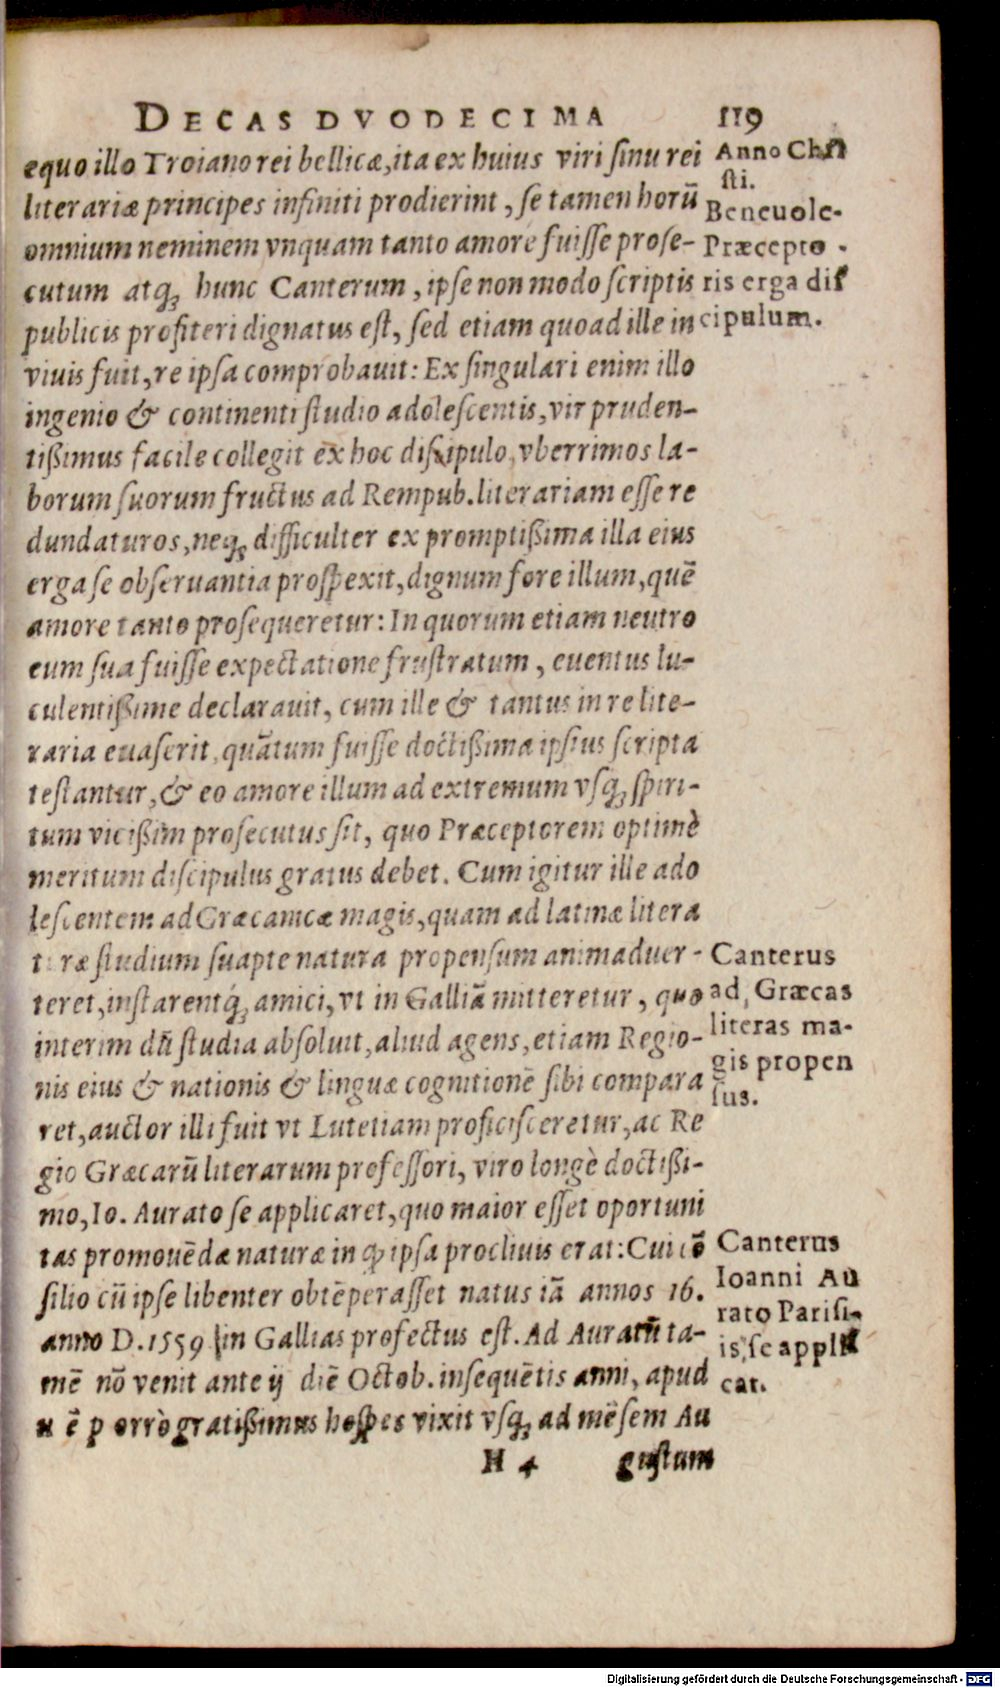 DECAS DVODECIMA 119
equo illo Troiano rei bellicæ, ita ex huius viri sinu rei
literariæ principes infiniti prodierint, se tamen horū
omnium neminem vnquam tanto amore fuisse prose-
cutum atq; hunc Canterum, ipse non modo scriptis
publicis profiteri dignatus est, sed etiam quoad ille in
viuis fuit, re ipsa comprobauit: Ex singulari enim illo
ingenio & continenti studio adolescentis, vir pruden-
tißimus facile collegit ex hoc discipulo, vberrimos la-
borum suorum fructus ad Rempub. literariam esse re
dundaturos, neq; difficulter ex promptißima illa eius
erga se obseruantia prospexit, dignum fore illum, quē
amore tanto prosequeretur: In quorum etiam neutro
eum sua fuisse expectatione frustratum, euentus lu-
culentißime declarauit, cum ille & tantus in re lite-
raria euaserit, quātum fuisse doctißima ipsius scripta
testantur, & eo amore illum ad extremum vsq; spiri-
tum vicißim prosecutus sit, quo Præceptorem optimè
meritum discipulus gratus debet. Cum igitur ille ado
lescentem ad Græcanicæ magis, quam ad latinæ litera
turæ studium suapte natura propensum animaduer-
teret, instarentq́; amici, vt in Galliā mitteretur, quo
interim dū studia absoluit, aliud agens, etiam Regio-
nis eius & nationis & linguæ cognitionē sibi compara
ret, auctor illi fuit vt Lutetiam proficisceretur, ac Re
gio Græcarū literarum professori, viro longè doctißi-
mo, Io. Aurato se applicaret, quo maior esset oportuni
tas promouēdæ naturæ in ꝙ ipsa procliuis erat: Cui cō
silio cū ipse libenter obtēperasset natus iā annos 16.
anno D. 1559 in Gallias profectus est. Ad Auratū ta-
mē nō venit ante ij diē Octob. insequētis anni, apud
ē porrò gratißimus hospes vixit vsq; ad mēsem Au
H 4 gustum
Anno Chri
sti.
Beneuole-
Præcepto
ris erga dis
cipulum.
Canterus
ad Græcas
literas ma-
gis propen
sus.
Canterus
Ioanni Au
rato Parisi-
is, se appli
cat.
Digitalisierung gefördert durch die Deutsche Forschungsgemeinschaft - DFG